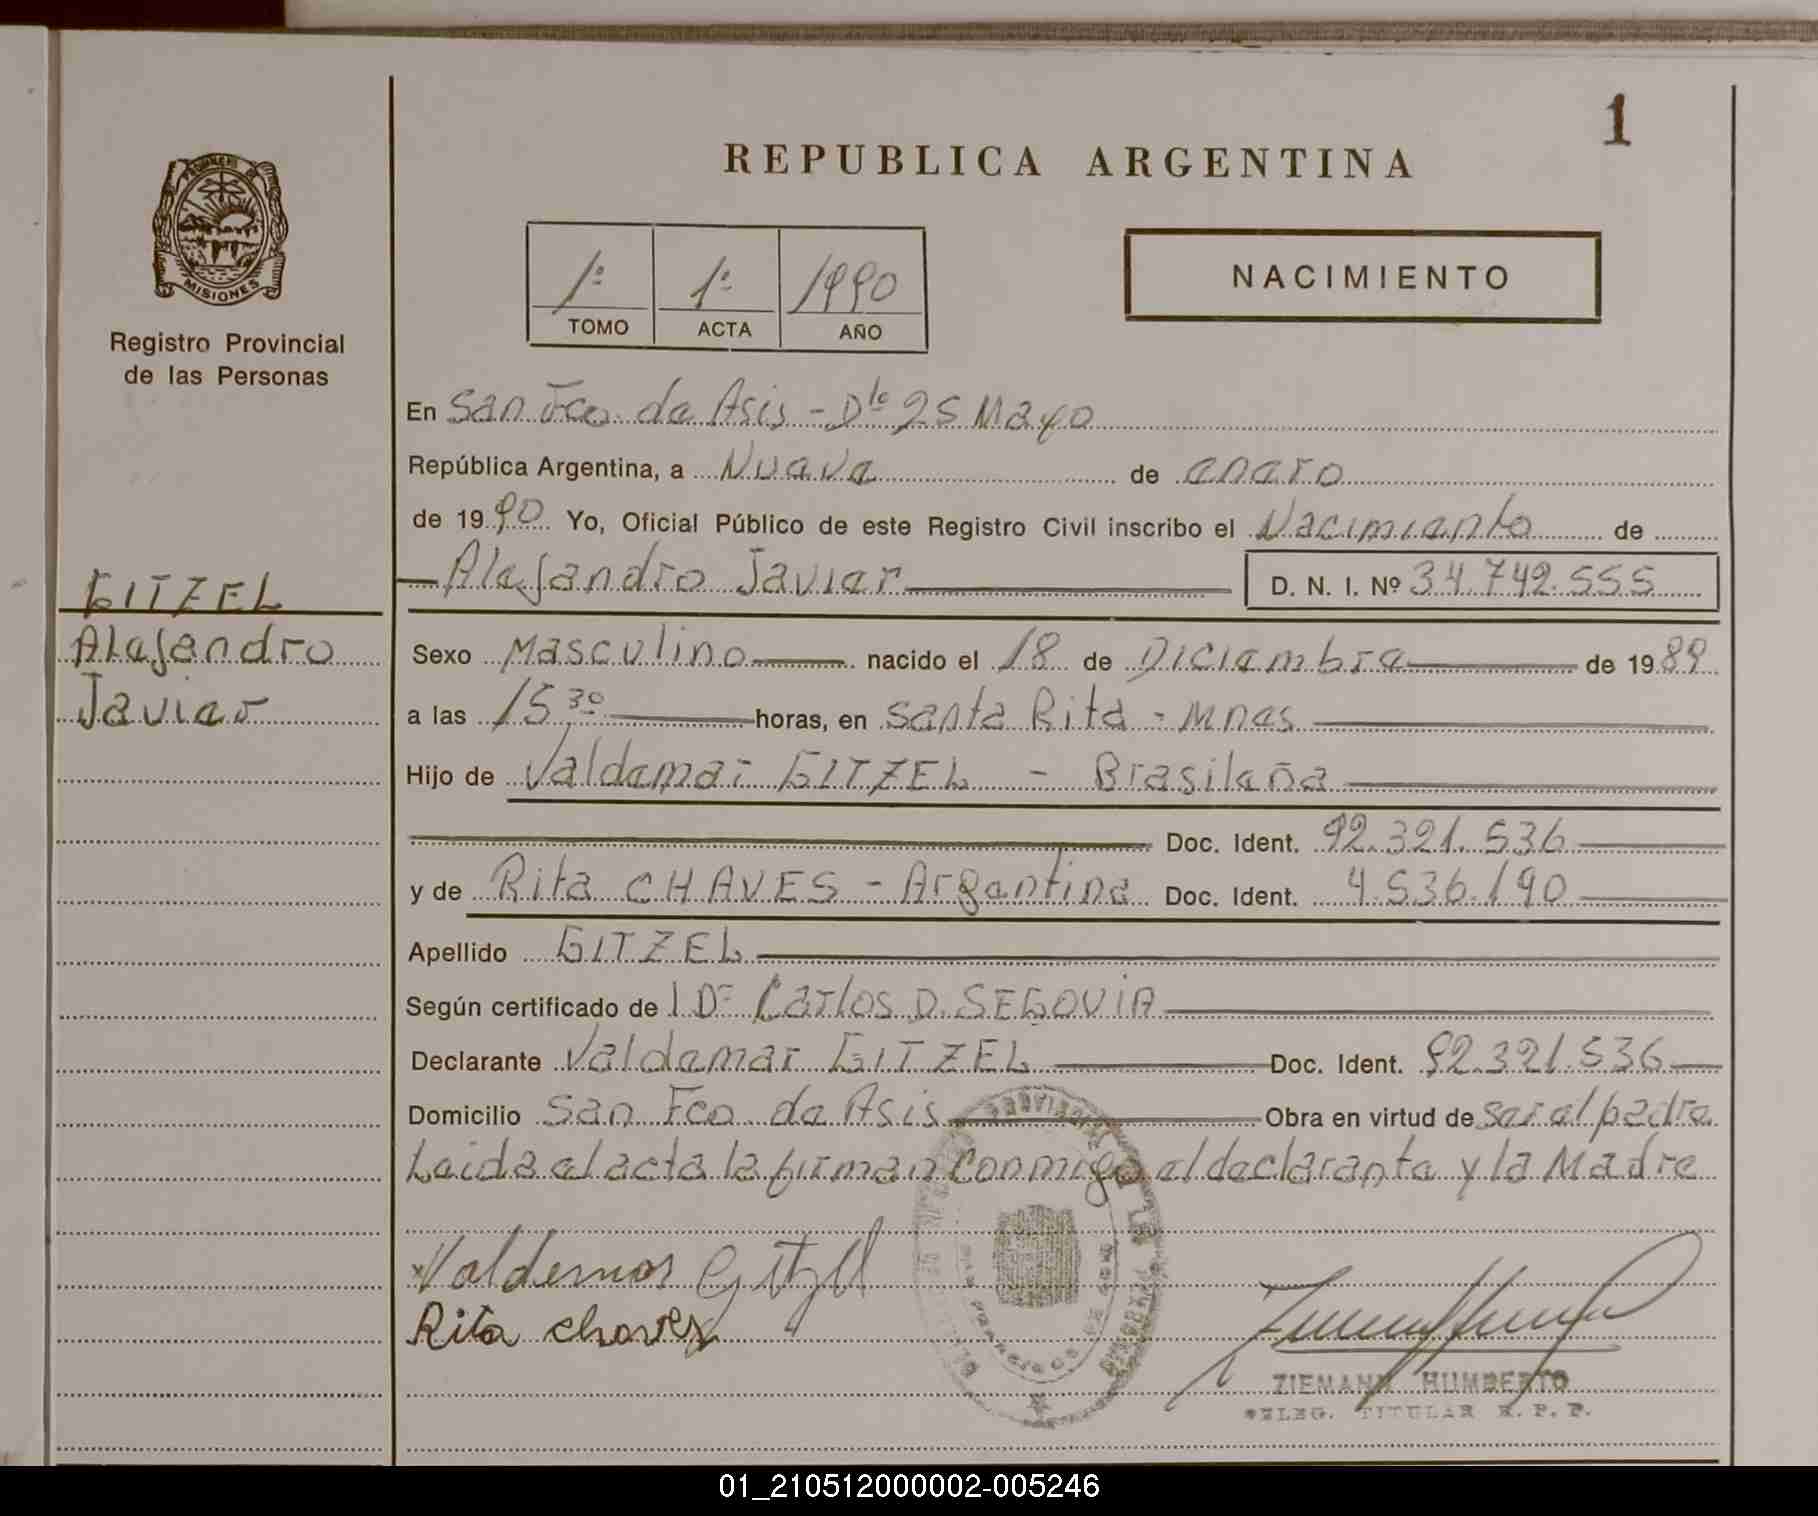 1
REPUBLICA ARGENTINA
MISIONES
Registro Provincial
de las Personas
1º 1º 1990
TOMO ACTA AÑO
NACIMIENTO
En San Fco. de Asis - Dto 25 Mayo
República Argentina, a Nueve de enero
de 1990 Yo, Oficial Público de este Registro Civil inscribo el Nacimiento de
Alejandro Javier D. N. I. Nº 34.742.555
GITZEL
Alejandro
Javier
Sexo Masculino nacido el 18 de Diciembre de 1989
a las 15 30 horas, en Santa Rita - Mnes
Hijo de Valdemar GITZEL - Brasileña
Doc. Ident. 92.321.536
y de Rita CHAVES - Argentina Doc. Ident. 4.536.190
Apellido GITZEL
Según certificado de 1 Dr Carlos D. SEGOVIA
Declarante Valdemar GITZEL Doc. Ident. 92.321.536
Domicilio San Fco. de Asis Obra en virtud de ser el padre
Leida el acta la firman conmigo el declarante y la Madre
Valdemar Gitzel
Rita Chavez
ZIEMANN HUMBERTO
DELEG. TITULAR R. P. P.
01_210512000002-005246